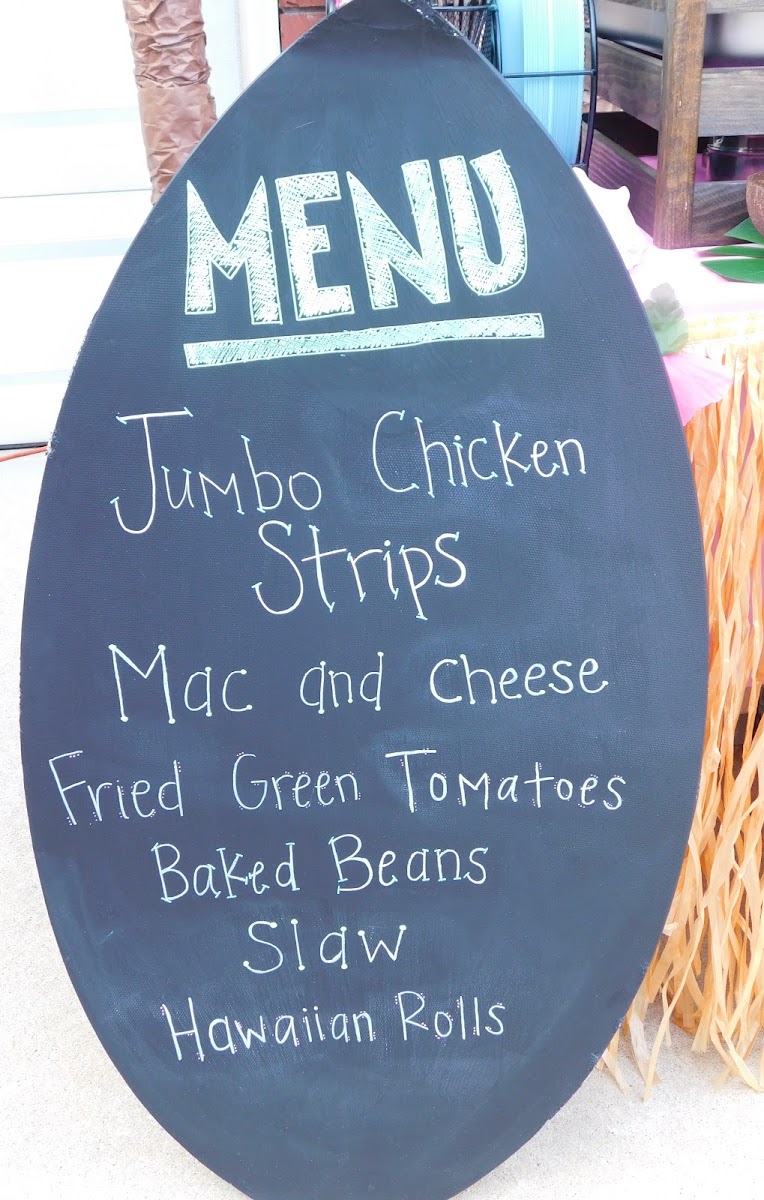 MENU
Jumbo Chicken
Strips
Mac and cheese
Fried Green Tomatoes
Baked Beans
Slaw
Hawaiian Rolls